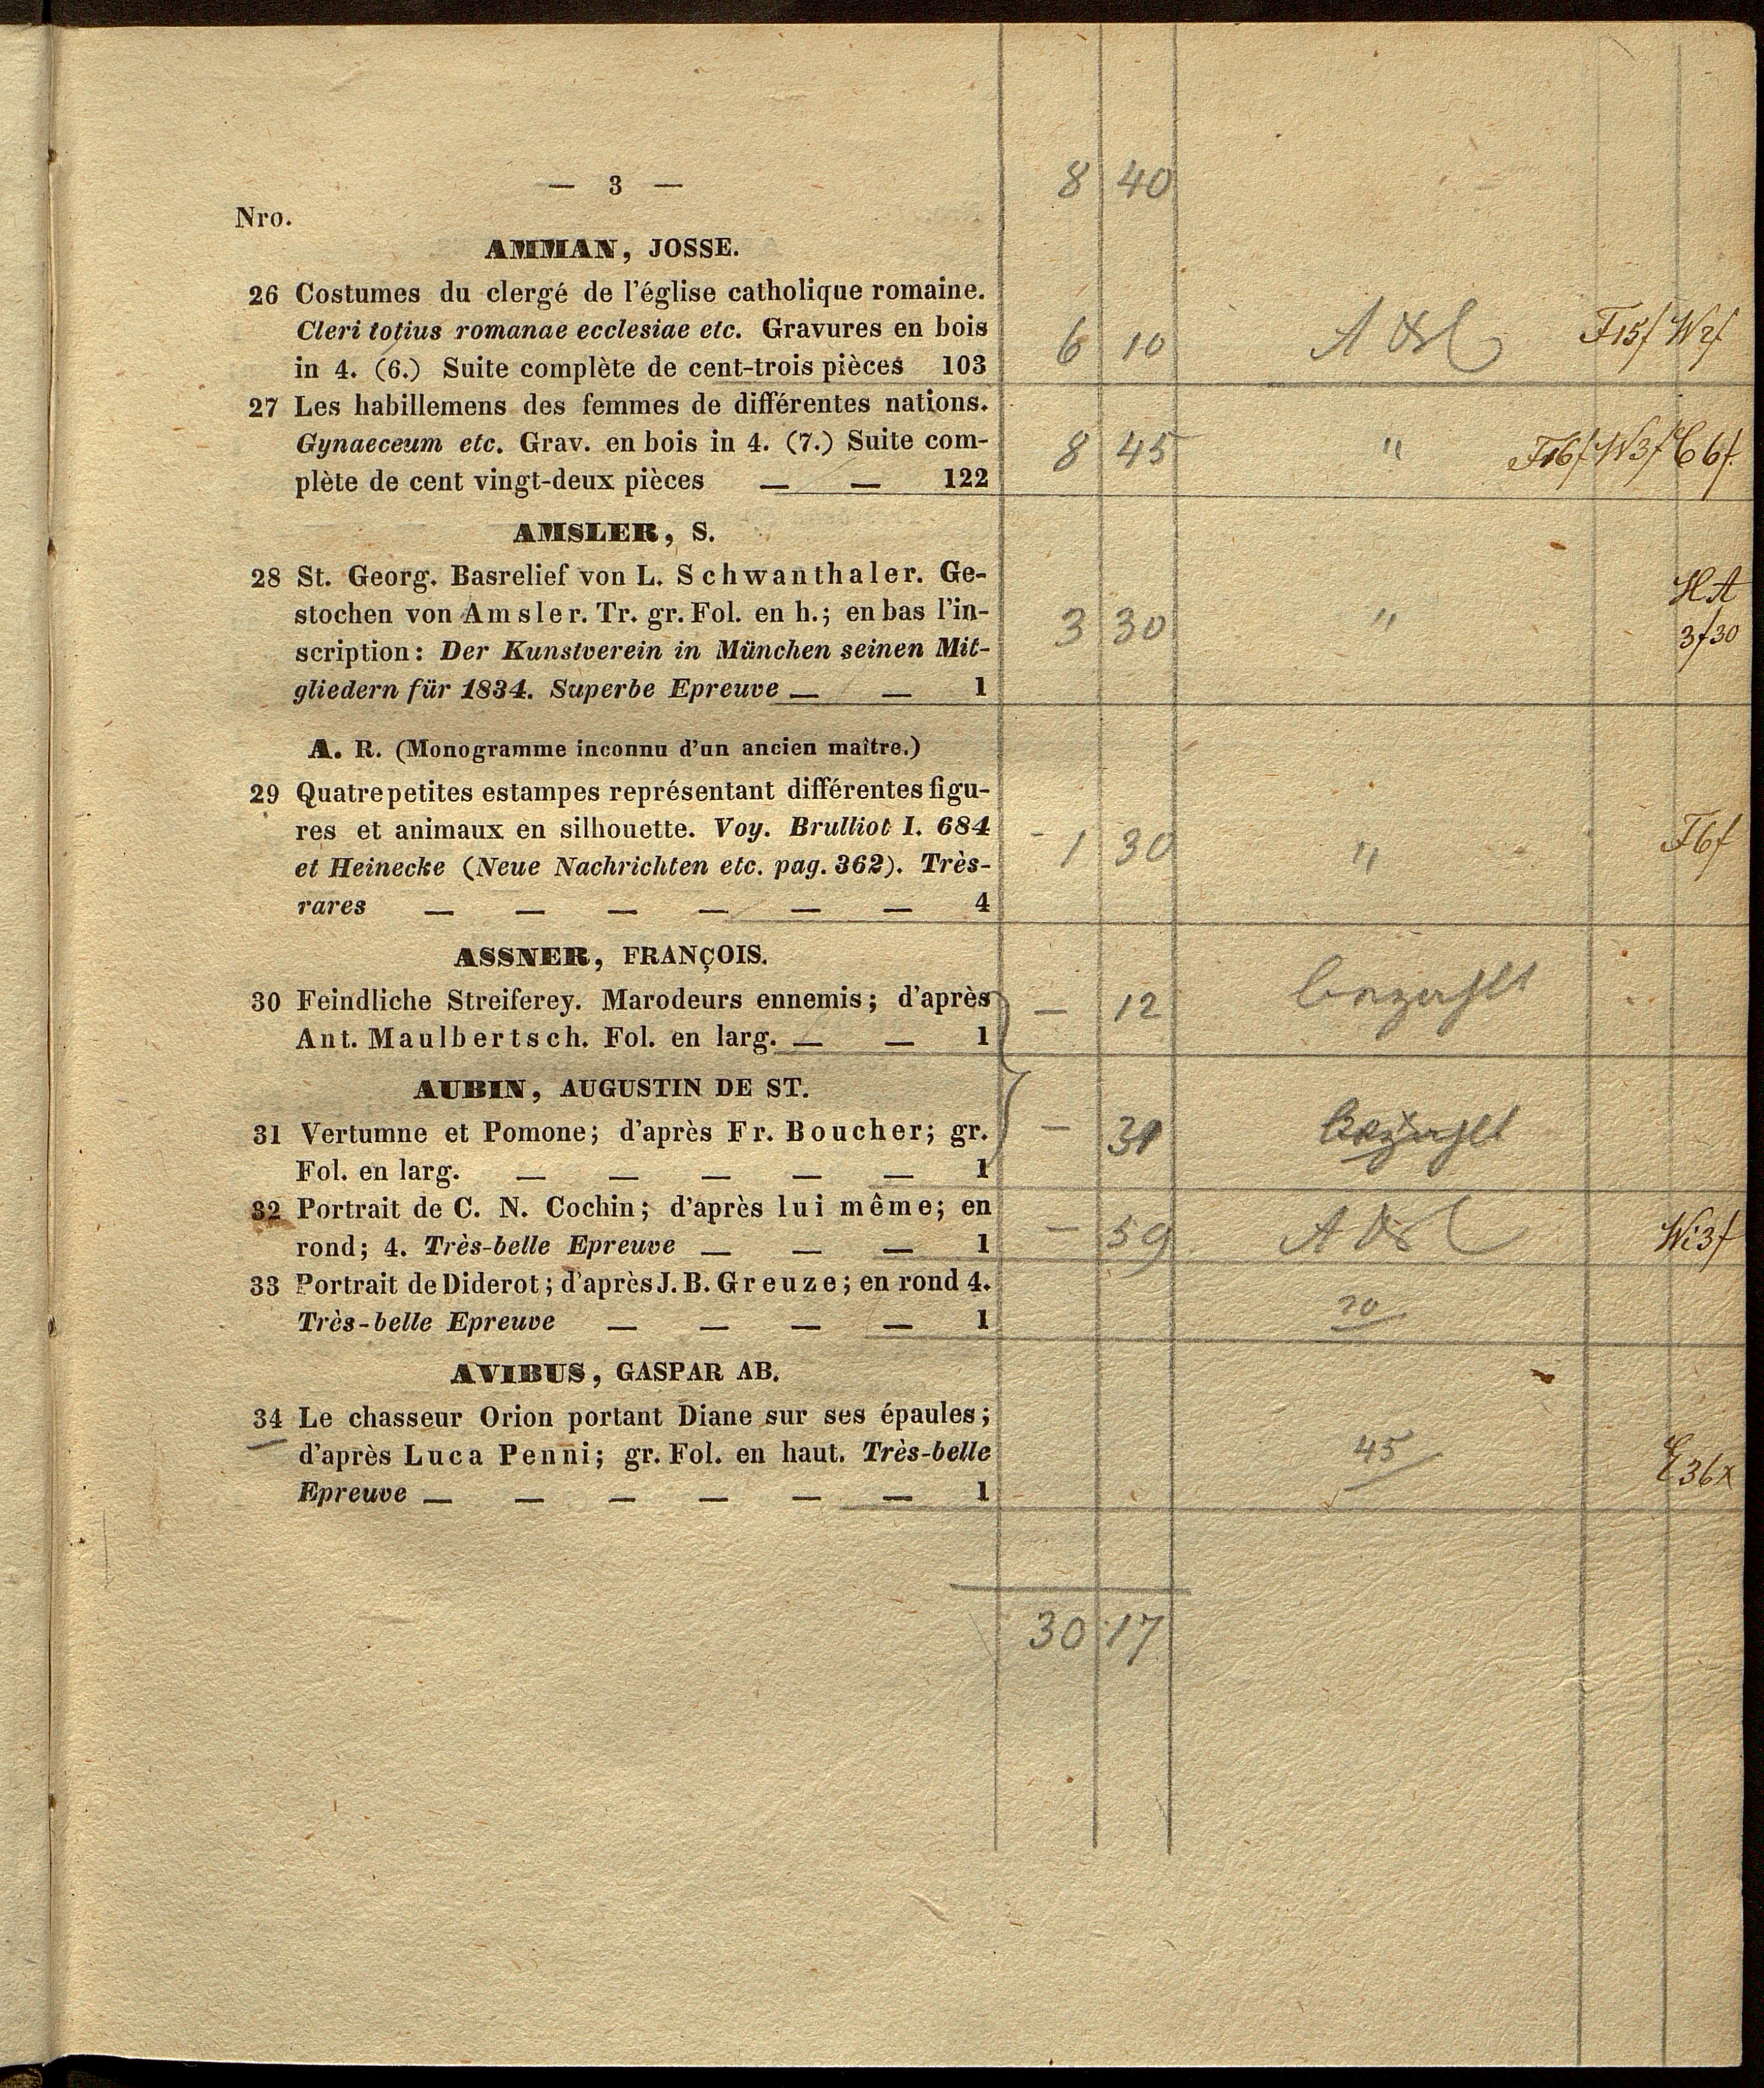 — 3 — 8 40
Nro.
AMMAN, JOSSE.
26 Costumes du clergé de l'église catholique romaine.
Cleri totius romanae ecclesiae etc. Gravures en bois
in 4. (6.) Suite complète de cent-trois pièces 103 6 10 F15f W2f
27 Les habillemens des femmes de différentes nations.
Gynaeceum etc. Grav. en bois in 4. (7.) Suite com- 8 45 " F16f W3f C 6f
plète de cent vingt-deux pièces — — 122
AMSLER, S.
28 St. Georg. Basrelief von L. Schwanthaler. Ge- HA
stochen von Amsler. Tr. gr. Fol. en h.; en bas l'in- 3 30 " 3f30
scription: Der Kunstverein in München seinen Mit-
gliedern für 1834. Superbe Epreuve — — 1
A. R. (Monogramme inconnu d'un ancien maître.)
29 Quatre petites estampes représentant différentes figu-
res et animaux en silhouette. Voy. Brulliot I. 684 - 1 30 " F6f
et Heinecke (Neue Nachrichten etc. pag. 362). Très-
rares — — — — — — 4
ASSNER, FRANÇOIS.
30 Feindliche Streiferey. Marodeurs ennemis; d'après — 12 bezahlt
Ant. Maulbertsch. Fol. en larg. — — 1
AUBIN, AUGUSTIN DE ST.
31 Vertumne et Pomone; d'après Fr. Boucher; gr. — bezahlt
Fol. en larg. — — — — — 1
32 Portrait de C. N. Cochin; d'après lui même; en
rond; 4. Très-belle Epreuve — — — 1 — 59 Wi3f
33 Portrait de Diderot; d'après J. B. Greuze; en rond 4.
Très-belle Epreuve — — — — 1
AVIBUS, GASPAR AB.
34 Le chasseur Orion portant Diane sur ses épaules;
d'après Luca Penni; gr. Fol. en haut. Très-belle 45
Epreuve — — — — — — 1
30 17